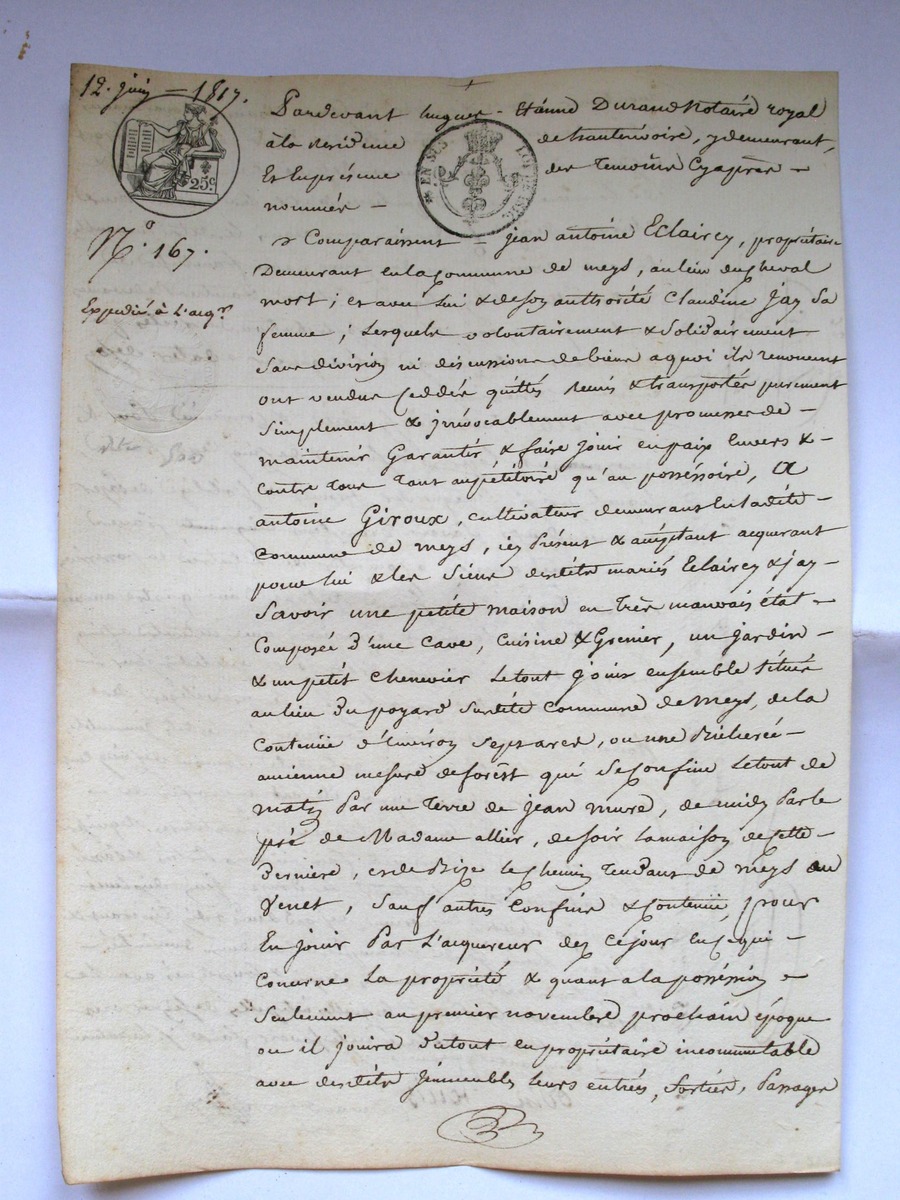 12. juin - 1817.
25c
EN SUS
LOI DE 1816
N.o 167.
Expedié à L'acqr
Pardevant hugues - Etiénne Durand Notaire royal
à la Residence de hauterivoire, y demeurant,
Et En présence des temoins Cyaprès -
nommés -
Comparaissent - jean antoine Eclaircy, propriétaire
Demeurant en la Commune de meys, au lieu du cheval
mort; et avec lui & de son authorité Claudine Jay sa
femme; Lesquels volontairement & solidairement
sans division ni discussions de biens a quoi ils renoncent
ont vendus Ceddés quittés Remis & transportés purement
simplement & jrrévocablement avec promesses de -
maintenir Garantir & faire jouir en paix Envers &
contre tous tant au pétitoiré qu'au posséssoire, A
antoine Giroux, cultivateur demeurant en ladite -
Commune de meys, icy Présent & acceptant acquerant
pour lui & les siens desdits mariés Eclaircy & jay -
Savoir une petite maison en très mauvais état -
Composée d'une cave, Cuisine & Grenier, un jardin -
& un pétit chenevier Le tout joint ensemble situés
au lieu du poyard susdite Commune de meys, de la
Contenüe d'Environ Sept ares, ou une Bicherée -
ancienne mesure de forêst qui Se Confine Le tout de
matin Par une Terre de jean mure, de midy Par le
pré de Madame allier, de soir la maison de Cette -
Derniere, et de Bize le chemin Tendant de meys au
Venet, Sauf autres Confins & Contenüe, pour
En jouir Par L'acquereur dez ce jour En ce qui -
Concerne La propriété & quant a la posséssion -
seulement au premier novembre prochain époque
ou il jouira du tout en propriétaire incommutable
avec desdits jmmeubles leurs entrées, Sorties, Passages